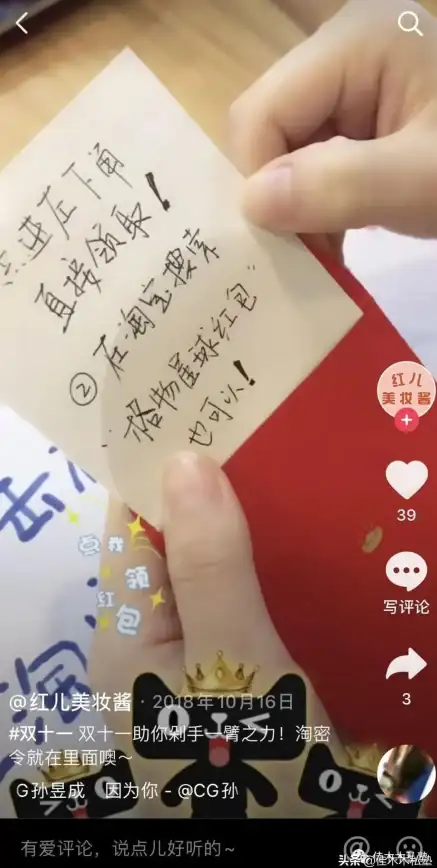 点进左下角
直接领取!
②在淘宝搜索
"格物星球红包"
也可以!
点我
领
红包
红儿
美妆酱
39
写评论
3
@红儿美妆酱 · 2018年10月16日
#双十一 双十一助你剁手一臂之力！淘密
令就在里面噢～
G孙昱成 因为你 - @CG孙
有爱评论，说点儿好听的～